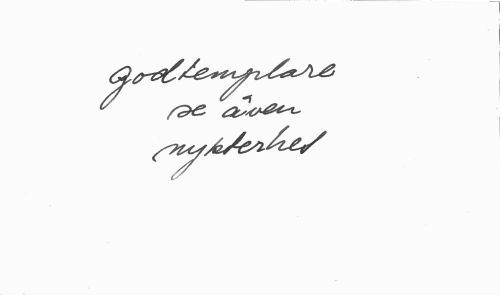 godtemplare
se även
nykterhet